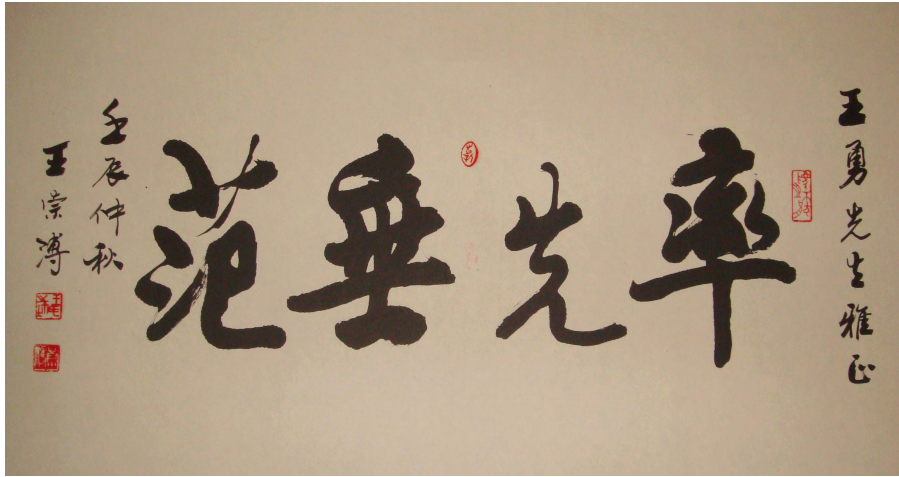 王勇先生雅正
率先垂范
壬辰仲秋
王崇溥